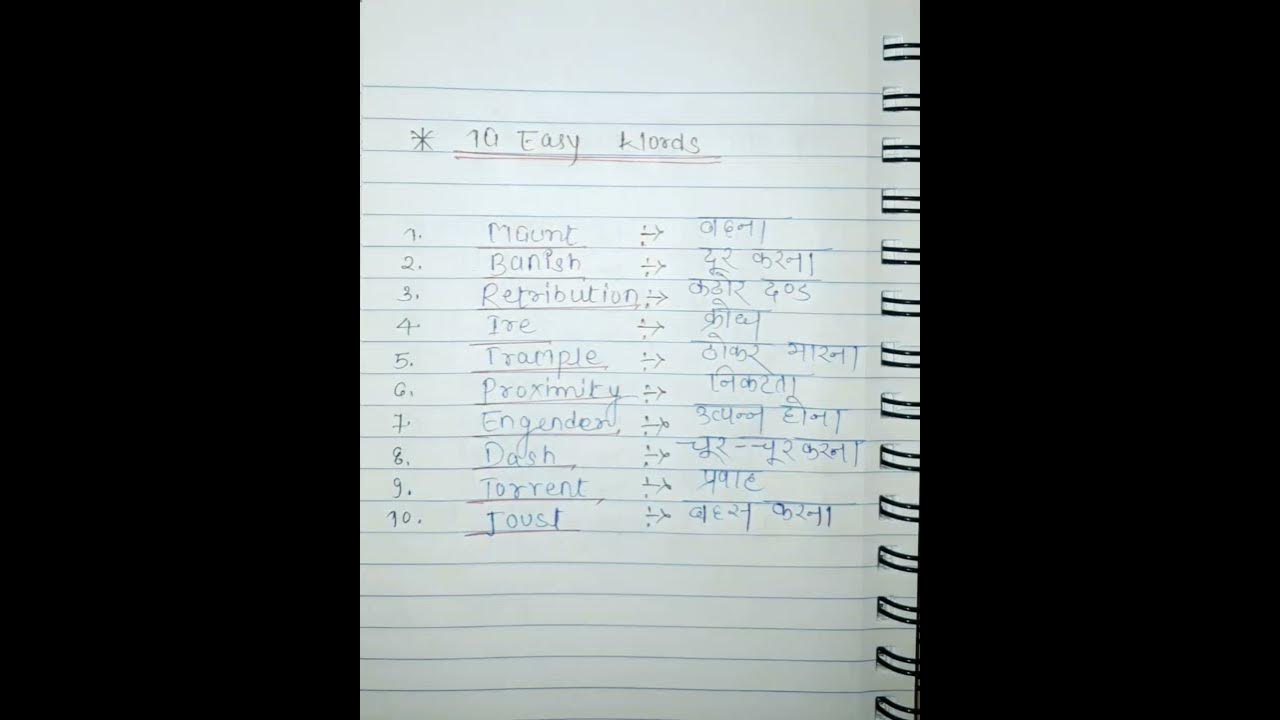 * 10 Easy Words
1. Mount ÷> बढना
2. Banish ÷> दूर करना
3. Retribution ÷> कठोर दण्ड
4. Ire ÷> क्रोध
5. Trample ÷> ठोकर मारना
6. Proximity ÷> निकटता
7. Engender ÷> उत्पन्न होना
8. Dash ÷> चूर-चूर करना
9. Torrent ÷> प्रवाह
10. Joust ÷> बहस करना